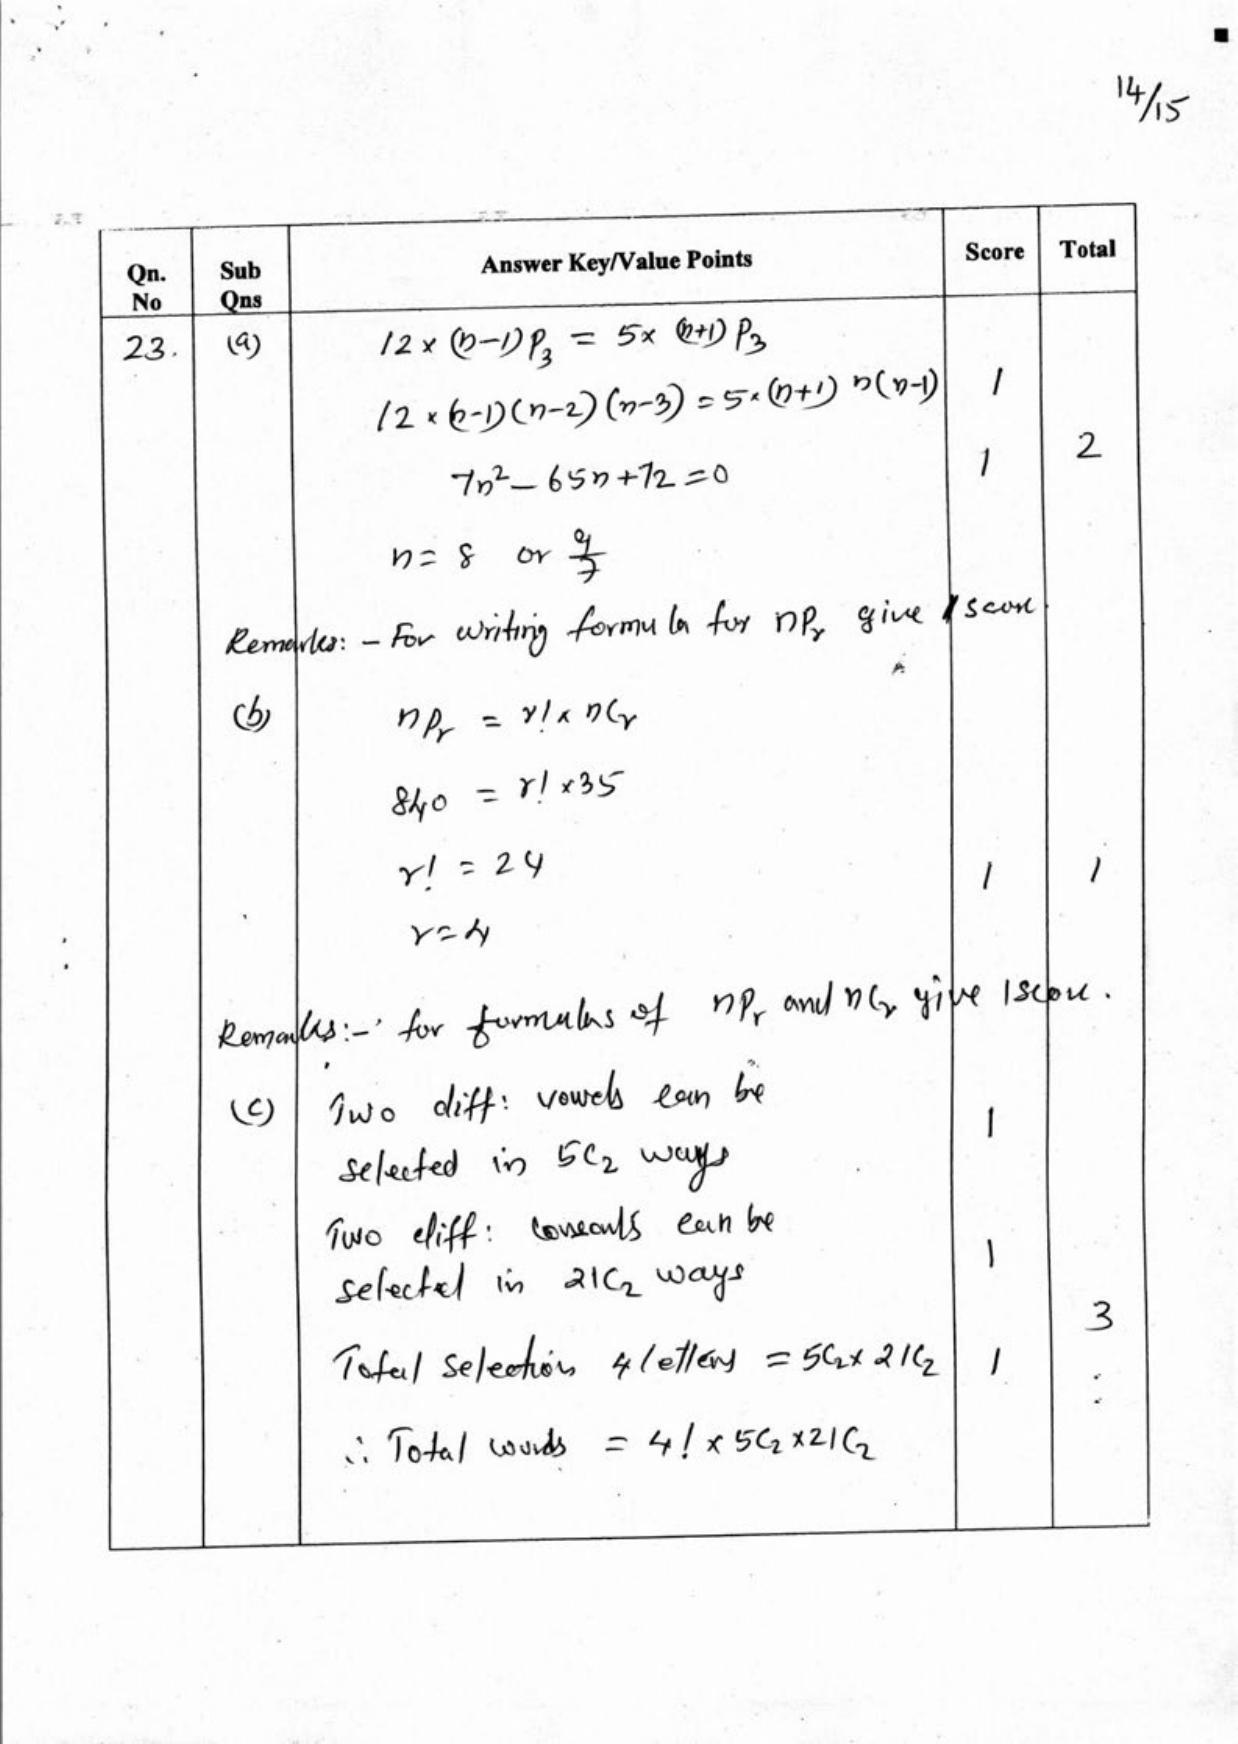 14/15
Qn. No Sub Qns Answer Key/Value Points Score Total
23. (a) 12 × (n-1)P₃ = 5× (n+1)P₃
12 × (n-1)(n-2)(n-3) = 5×(n+1) n(n-1) 1
7n² - 65n + 72 = 0 1 2
n = 8 or 9/7
Remarks: - For writing formula for nPr give 1 score
(b) nPr = r! × nCr
840 = r! × 35
r! = 24 1 1
r = 4
Remarks:- for formulas of nPr and nCr give 1 score.
(c) Two diff: vowels can be
selected in 5C₂ ways 1
Two diff: can be
selected in 21C₂ ways 1
3
Total selection 4 letters = 5C₂ × 21C₂ 1
∴ Total words = 4! × 5C₂ × 21C₂